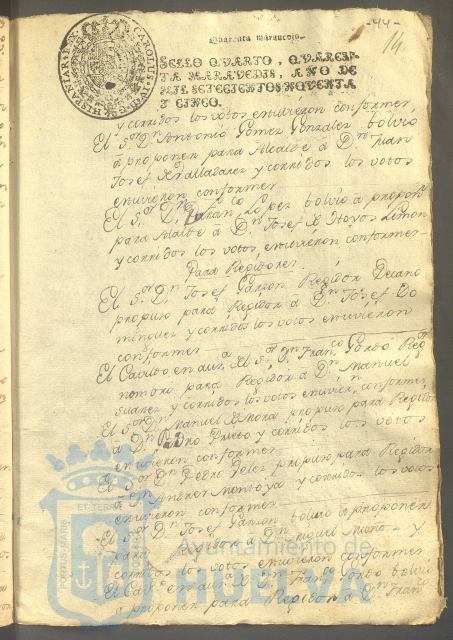 -44-
14
Quarenta maravedis.
SELLO QVARTO, QVAREN-
TA MARAVEDIS, AÑO DE
MIL SETECIENTOS NOVENTA
Y CINCO.
HISPANIAR. REX. CAROLUS IV D.G.
y corridos los votos estuvieron conformes,
El S.or D.n Antonio Gomez Gonzalez bolvio
á proponer para Alcalde á D.n Juan
Josef y corridos los votos
estuvieron conformes
El S.or D.n Fran.co Lopez bolvio á propon.r
para Alcalde á D.n Josef de Hoyos Limon
y corridos los votos, estuvieron conformes
Para Regidores
El S.or D.n Josef Regidor Decano
propuso para Regidor á D.n Josef Do
minguez y corridos los votos estuvieron
conformes
El Cavildo en aus.a del S.or D.n Fran.co Reg.or
nombró para Regidor á D.n Manuel
Suarez y corridos los votos estuvier.n conformes,
El S.or D.n Manuel de Mora propuso para Regidor
á D.n Pedro Prieto y corridos los votos
estuvieron conformes
El S.or D.n Perez propuso para Regidor
á D.n Andres Montoya y corridos los votos
estuvieron conformes
El S.or D.n Josef bolvio á proponer
para Regidor á D.n Miguel Muñoz y
corridos los votos estuvieron conformes
El Cav.do en aus.a de D.n Fran.co bolvio
á proponer para Regidor á D.n Fran.co
Ayuntamiento de
HUELVA
PORTUS MARIS
ET TERRAE